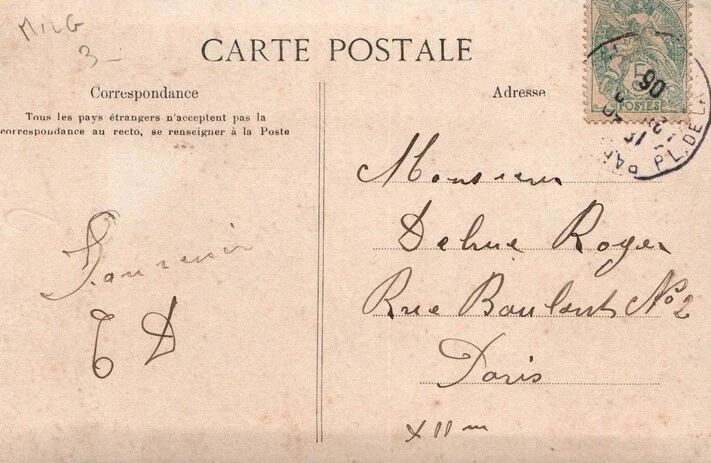 MILG
3-
CARTE POSTALE
Correspondance
Tous les pays étrangers n'acceptent pas la
correspondance au recto, se renseigner à la Poste
Adresse
5
POSTES
06
PL. DE LA
Monsieur
Dehue Roger
Rue Boulant No 2
Paris
XIIm
Souvenir
E D